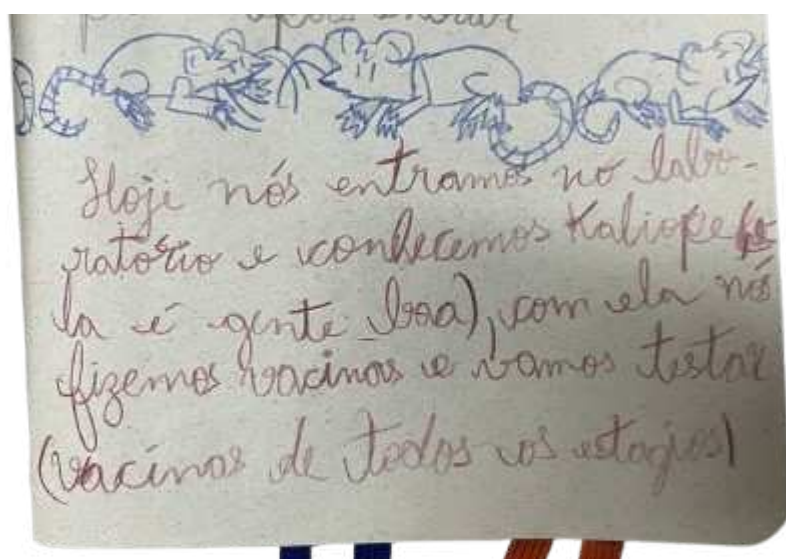 Hoje nós entramos no labo-
ratório e conhecemos Kaliope (e-
la é gente boa), com ela nós
fizemos vacinas e vamos testar
(vacinas de todos os estagios)